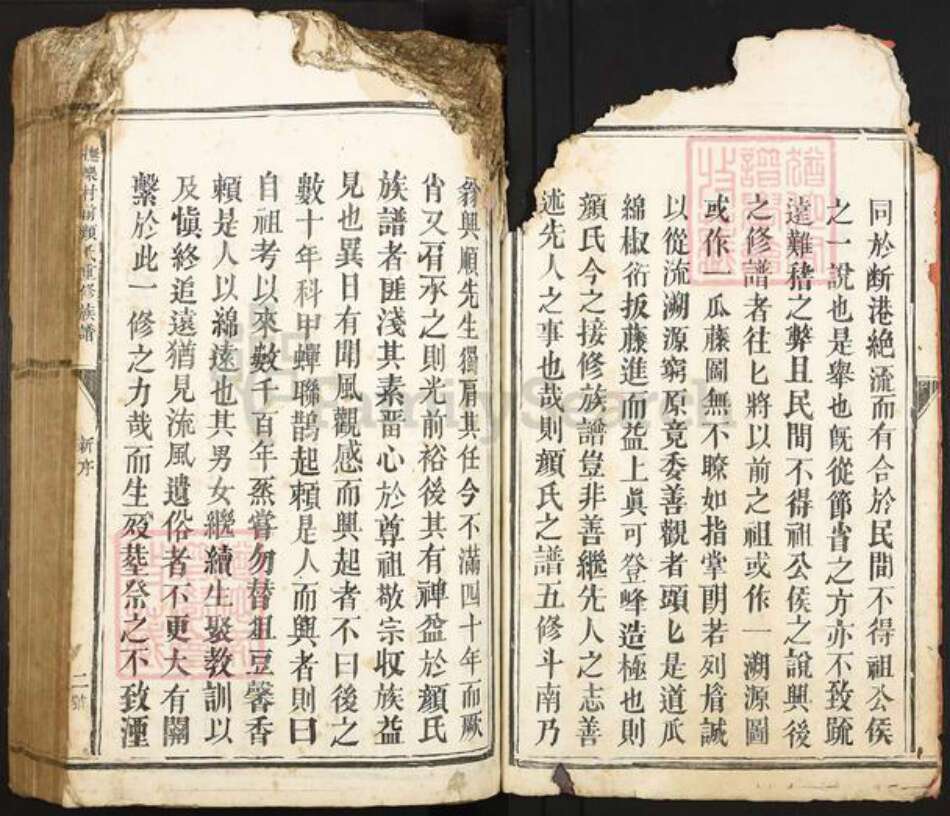 同於断港絶流而有合於民間不得祖公侯
之一說也是舉也旣從節省之方亦不致䟽
遠難稽之弊且民間不得祖公侯之說興後
之修譜者往匕將以前之祖或作一溯源圖
或作一瓜藤圖無不瞭如指掌朗若列眉誠
以從流溯源窮原竟委善觀者頭匕是道瓜
綿椒衍扳藤進而益上眞可登峰造極也則
顔氏今之接修族譜豈非善繼先人之志善
述先人之事也哉則顔氏之譜五修斗南乃
翁興順先生獨肩其任今不滿四十年而厥
肖又有承之則光前裕後其有裨益於顔氏
族譜者匪淺其素畱心於尊祖敬宗収族益
見也異日有聞風觀感而興起者不曰後之
數十年科甲蟬聯鵲起頼是人而興者則曰
自祖考以來數千百年烝嘗勿替俎豆馨香
頼是人以綿遠也其男女繼續生聚教訓以
及愼終追遠猶見流風遺俗者不更大有關
繫於此一修之力哉而生殁塟祭之不致湮
樂村前顔氏重修族譜
新序
二
FamilySearch